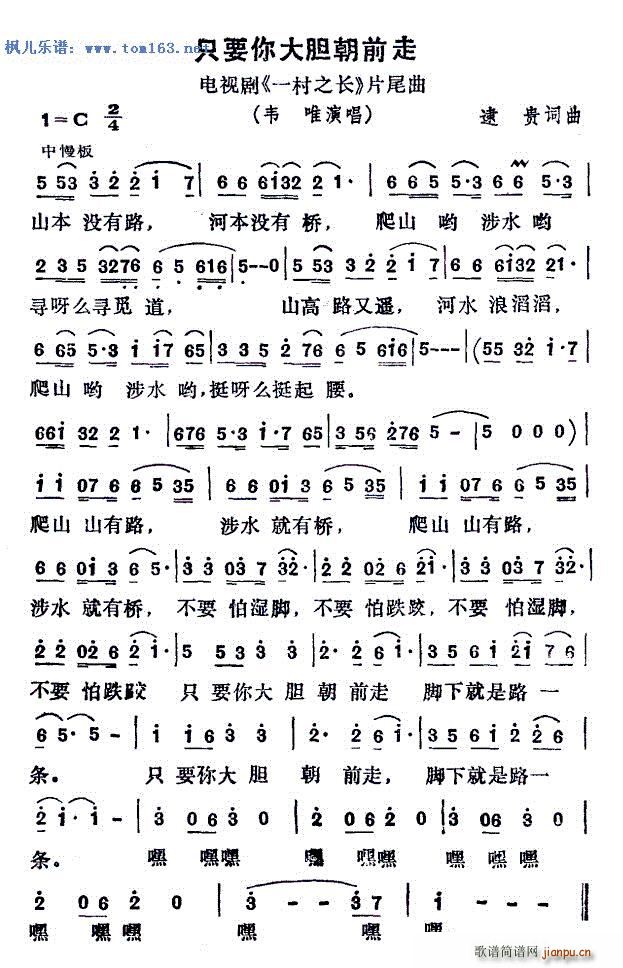 枫儿乐谱：www.tom163.net
只要你大胆朝前走
电视剧《一村之长》片尾曲
1=C 2/4 （韦 唯演唱） 逮 贵词曲
中慢板
5 53 3 2 2 1 7 | 6 6 6132 2 1· | 6 6 5 5·3 6 6 5·3 |
山本 没有 路， 河本没有 桥， 爬山 哟 涉水 哟
2 3 5 3276 6 5 616 | 5--0 | 5 53 3 2 2 1 7 | 6 6 6132 2 1· |
寻呀么寻觅 道， 山高 路又遥， 河水 浪滔滔，
6 65 5·3 1 17 65 | 3 3 5 2 76 6 5 616 | 5--- | (55 32 1·7 |
爬山 哟 涉水 哟，挺呀么挺起 腰。
661 32 2 1· | 676 5·3 1·7 65 | 3 56 276 5 - | 5 0 0 0) |
1 1 07 6 6 5 35 | 6 6 01 3 6 5 35 | 1 1 07 6 6 5 35 |
爬山 山有路， 涉水 就有桥， 爬山 山有路，
6 6 01 3 6 5· | 3 3 03 7 32· | 2 2 02 6 21· | 3 3 03 7 32· |
涉水 就有桥， 不要 怕湿脚， 不要 怕跌跤， 不要 怕湿脚，
2 2 02 6 2 1· | 5 5 3 3 3 | 2· 2 6 1· | 3 3 5 6 1 2 1 7 6 |
不要 怕跌跤 只 要你大 胆 朝 前走 脚下 就是 路 一
6 5· 5 - | 1 1 6 3 3 | 2· 2 6 1· | 3 3 5 6 1 2 2 6 |
条。 只 要你大 胆 朝 前走， 脚下就是路一
2 1· 1 - | 3 0 6 3 0 | 2 0 6 2 0 | 3 0 6 3 0 |
条。 嘿 嘿嘿 嘿 嘿嘿 嘿 嘿嘿
2 0 6 2 0 | 3 - - 3 7 | 1 - - - |
嘿 嘿嘿 嘿 嘿 嘿
歌谱简谱网
jianpu.cn